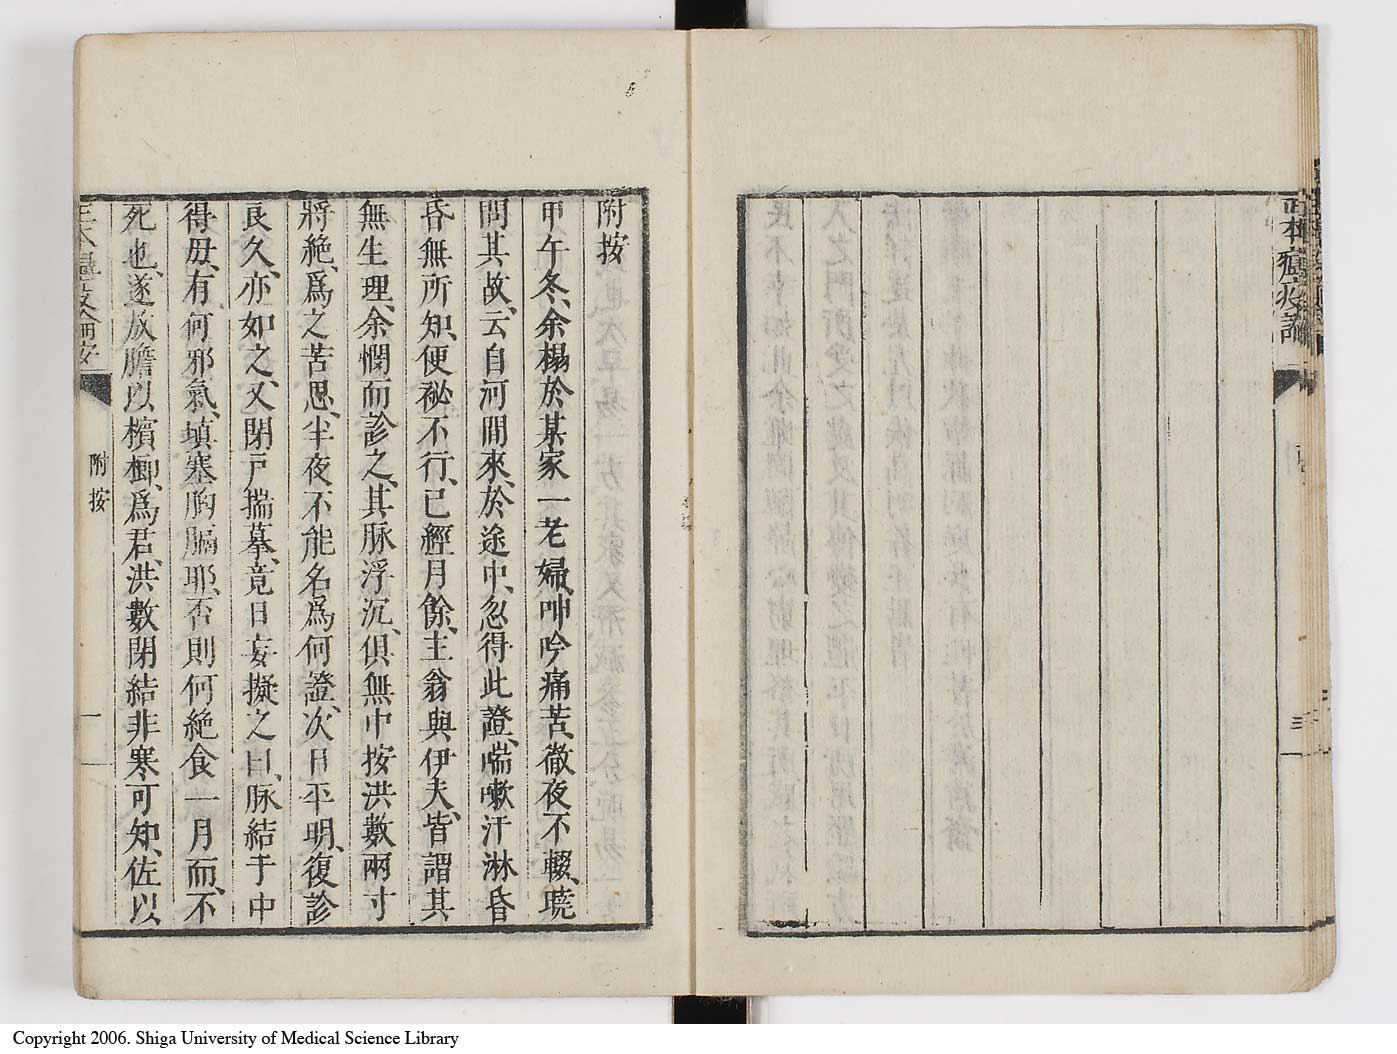 附按
甲午冬、余榻於某家一老婦、呻吟痛苦、徹夜不輟、曉
問其故、云自河間來、於途中、忽得此證、喘嗽汗淋昏
昏無所知、便祕不行、已經月餘、主翁與伊夫、皆謂其
無生理、余憫而診之、其脉浮沉、俱無中按洪數兩寸
將絶、爲之苦思、半夜不能名爲何證、次日平明、復診
良久、亦如之、又閉戸揣摹、竟日妄擬之曰、脉結于中
得毋、有何邪氣、塡塞胸膈耶、否則何絶食一月而、不
死也、遂放膽以檳榔、爲君、洪數閉結非寒可知、佐以
附按
一
三
Copyright 2006. Shiga University of Medical Science Library